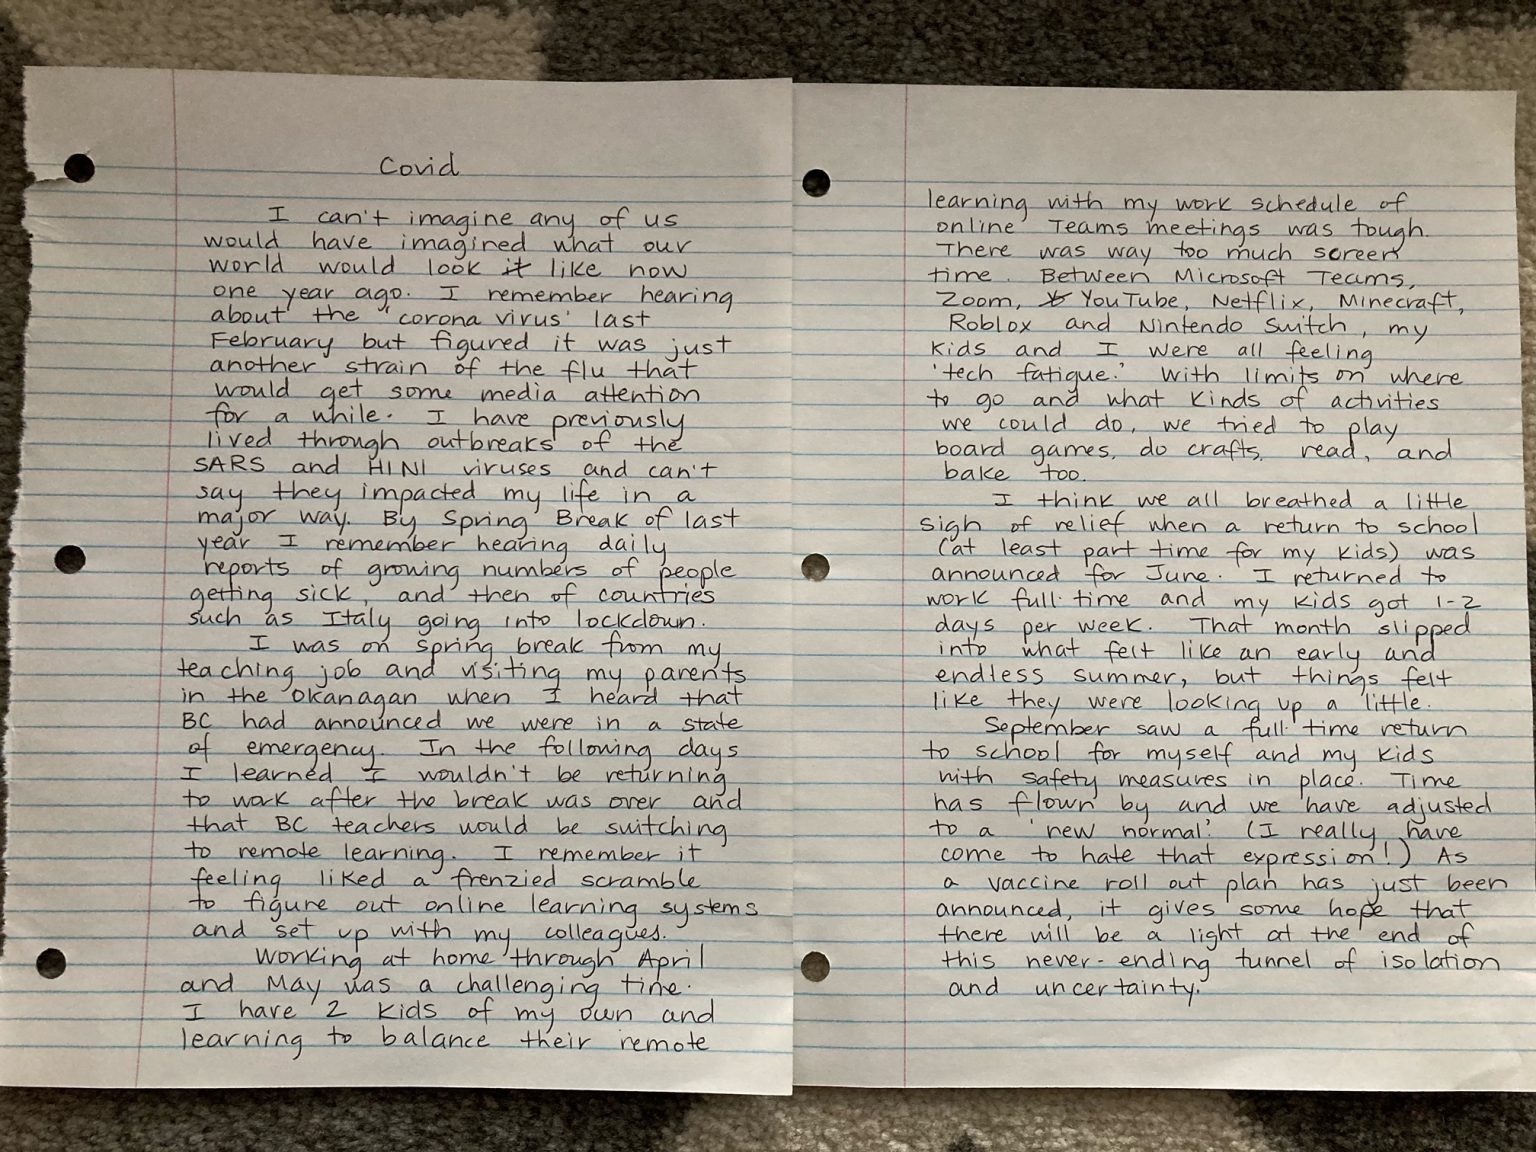 Covid
I can't imagine any of us
would have imagined what our
world would look it like now
one year ago. I remember hearing
about the 'corona virus' last
February but figured it was just
another strain of the flu that
would get some media attention
for a while. I have previously
lived through outbreaks of the
SARS and H1N1 viruses and can't
say they impacted my life in a
major way. By Spring Break of last
year I remember hearing daily
reports of growing numbers of people
getting sick, and then of countries
such as Italy going into lockdown.
I was on spring break from my
teaching job and visiting my parents
in the Okanagan when I heard that
BC had announced we were in a state
of emergency. In the following days
I learned I wouldn't be returning
to work after the break was over and
that BC teachers would be switching
to remote learning. I remember it
feeling liked a frenzied scramble
to figure out online learning systems
and set up with my colleagues.
Working at home through April
and May was a challenging time.
I have 2 kids of my own and
learning to balance their remote
learning with my work schedule of
online Teams meetings was tough.
There was way too much screen
time. Between Microsoft Teams,
Zoom, YouTube, Netflix, Minecraft,
Roblox and Nintendo Switch, my
kids and I were all feeling
'tech fatigue.' With limits on where
to go and what kinds of activities
we could do, we tried to play
board games, do crafts, read, and
bake too.
I think we all breathed a little
sigh of relief when a return to school
(at least part time for my kids) was
announced for June. I returned to
work full-time and my kids got 1-2
days per week. That month slipped
into what felt like an early and
endless summer, but things felt
like they were looking up a little.
September saw a full-time return
to school for myself and my kids
with safety measures in place. Time
has flown by and we have adjusted
to a 'new normal'. (I really have
come to hate that expression!) As
a vaccine roll out plan has just been
announced, it gives some hope that
there will be a light at the end of
this never-ending tunnel of isolation
and uncertainty.